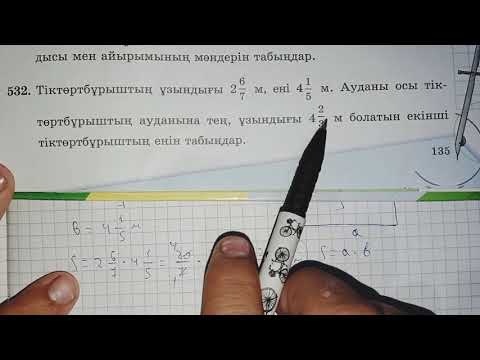 дысы мен айырымының мәндерін табыңдар.
532. Тіктөртбұрыштың ұзындығы 2 6/7 м, ені 4 1/5 м. Ауданы осы тік-
төртбұрыштың ауданына тең, ұзындығы 4 2/ м болатын екінші
тіктөртбұрыштың енін табыңдар.
135
в = 4 1/5 м
a
S = 2 6/7 · 4 1/5 =
S = a · в